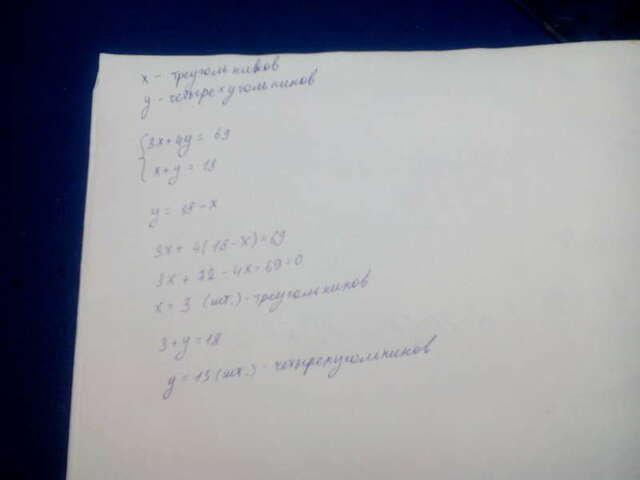 x - треугольников
y - четырехугольников
3x+4y = 69
x+y = 18
y = 18-x
3x + 4(18-x)=69
3x + 72 - 4x - 69 = 0
x = 3 (шт.) - треугольников
3+y=18
y = 15 (шт.) - четырехугольников